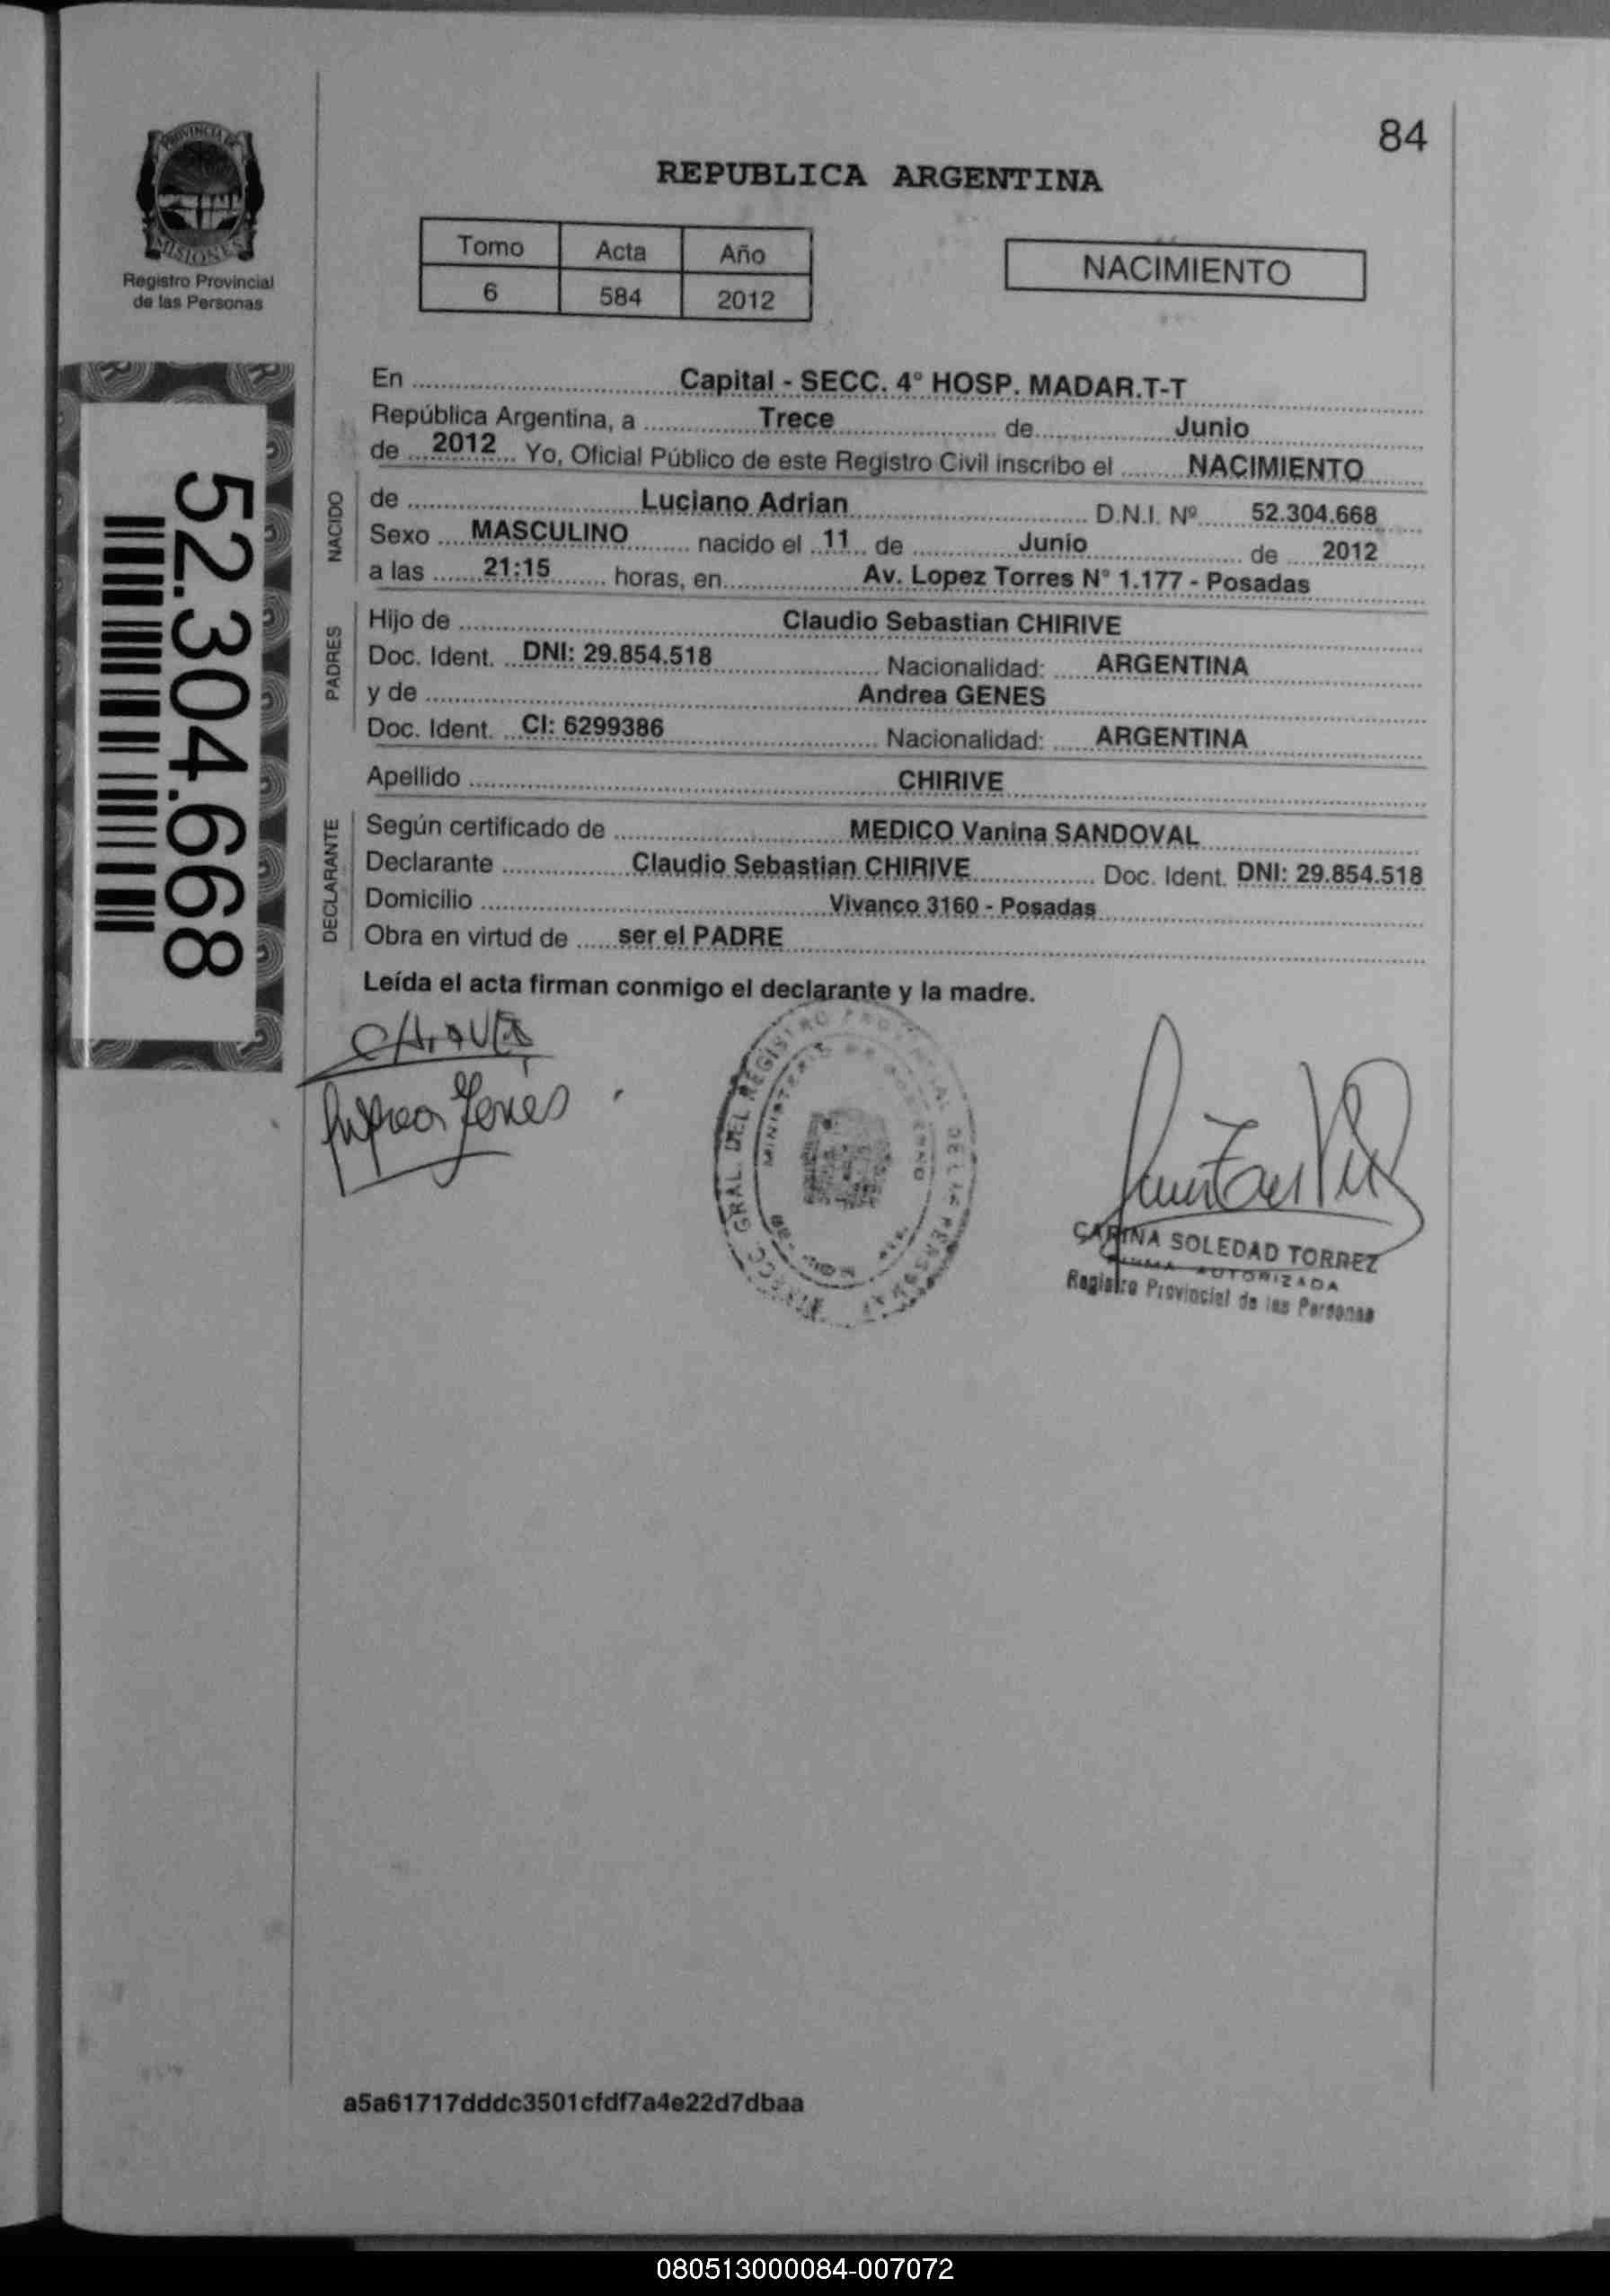 84
PROVINCIA DE
MISIONES
Registro Provincial
de las Personas
REPUBLICA ARGENTINA
Tomo Acta Año
6 584 2012
NACIMIENTO
52.304.668
En Capital - SECC. 4° HOSP. MADAR.T-T
República Argentina, a Trece de Junio
de 2012 Yo, Oficial Público de este Registro Civil inscribo el NACIMIENTO
NACIDO
de Luciano Adrian D.N.I. Nº 52.304.668
Sexo MASCULINO nacido el 11 de Junio de 2012
a las 21:15 horas, en Av. Lopez Torres N° 1.177 - Posadas
PADRES
Hijo de Claudio Sebastian CHIRIVE
Doc. Ident. DNI: 29.854.518 Nacionalidad: ARGENTINA
y de Andrea GENES
Doc. Ident. CI: 6299386 Nacionalidad: ARGENTINA
Apellido CHIRIVE
DECLARANTE
Según certificado de MEDICO Vanina SANDOVAL
Declarante Claudio Sebastian CHIRIVE Doc. Ident. DNI: 29.854.518
Domicilio Vivanco 3160 - Posadas
Obra en virtud de ser el PADRE
Leída el acta firman conmigo el declarante y la madre.
Andrea Genes
GRAL. DEL REGISTRO PROVINCIAL DE LAS PERSONAS
MINISTERIO DE GOBIERNO
CARINA SOLEDAD TORREZ
FIRMA AUTORIZADA
Registro Provincial de las Personas
a5a61717dddc3501cfdf7a4e22d7dbaa
080513000084-007072